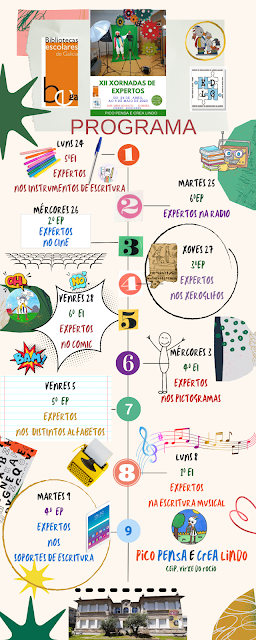 Bibliotecas
escolares
de Galicia
be
ga
XII XORNADAS DE
EXPERTOS
PICO PENSA E CREA LINDO
PROGRAMA
LUNS 24
5ºEI
EXPERTOS
NOS INSTRUMENTOS DE ESCRITURA
1
MARTES 25
6º EP
EXPERTOS NA RADIO
2
MÉRCORES 26
2º EP
EXPERTOS
NO CINE
3
XOVES 27
3ºEP
EXPERTOS
NOS XEROGLIFOS
4
OH,
NO!
VENRES 28
6º EI
EXPERTOS
NO COMIC
BAM!
5
MÉRCORES 3
4º EI
EXPERTOS
NOS PICTOGRAMAS
6
VENRES 5
5º EP
EXPERTOS
NOS DISTINTOS ALFABETOS
7
LUNS 8
1º EI
EXPERTOS
NA ESCRITURA MUSICAL
8
MARTES 9
4º EP
EXPERTOS
NOS
SOPORTES DE ESCRITURA
9
PICO PENSA E CREA LINDO
CEIP. VIRXE DO ROCIO